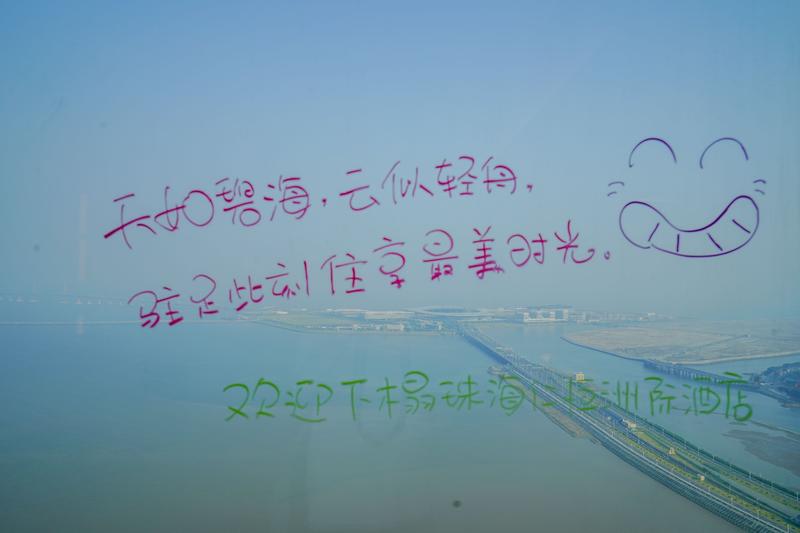 天如碧海，云似轻舟，
驻足此刻住享最美时光。
欢迎下榻珠海仁恒洲际酒店